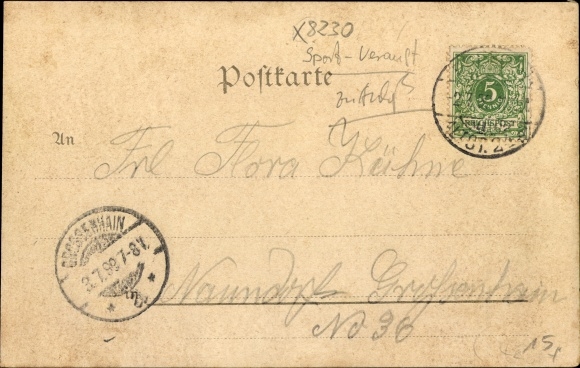 X8230
Sport-Veranst
Postkarte
5
REICHSPOST
An
Frl Flora Kühne
GROSSENHAIN
3.7.99 7-8V.
Naundorf Großenhain
No 36
15